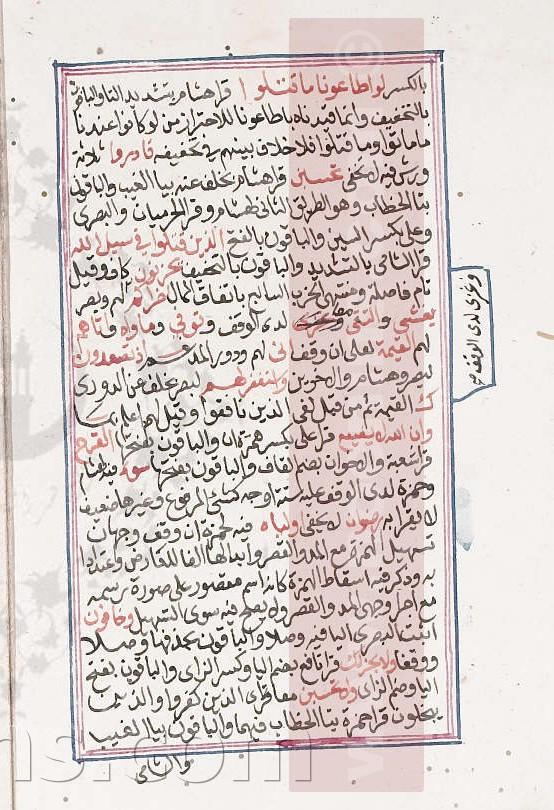 بالكسر لو اطاعونا ما قتلوا قرا هشام بتشديد التا والباقون
بالتخفيف وانما قيدناه باطاعونا للاحتراز من لو كانوا عندنا
ما ماتوا وما قتلوا فلا خلاف بينهم في تخفيفه فادروا ثلاثة
ورش فيه لا يخفى تحسبن قرا هشام بخلف عنه بيا الغيب والباقون
بتا الخطاب وهو الطريق الثاني لهشام وقرا الحرميان والبصري
وعلي بكسر السين والباقون بالفتح الذين قتلوا في سبيل الله
قرا الشامي بالتشديد والباقون بالتخفيف يحزنون كاف وقيل
تام فاصلة ومنتهى الحزب السابع باتفاق الممال لهم وبصر
يغشى والتقى لدى الوقف وتوفى وماواه
لهم القيمة لعلي ان وقف انى لهم ودوري اذ تصعدون
لبصر وهشام والاخوين واستغفر لهم لبصر بخلف عن الدوري
القيمة ثم من قبل لفي الذين نافقوا وقيل لهم
وان الله لا يضيع قرا علي بكسر همزة ان والباقون بفتحها القرح
قرا شعبة والاخوان بضم القاف والباقون بفتحها سوء فيه لهشام
وحمزة لدى الوقف عليه ستة اوجه كشئ المرفوع وغيرها ضعيف
لا يقرا به لا يخفى اولياءه فيه لحمزة ان وقف وجهان
تسهيل الهمزة مع المد والقصر وابدالها الفا للعارض
به وذكر فيه اسقاط الهمزة كانه اسم مقصور على صورة رسمه
مع اجرا وجهي المد والقصر ولا يصح فيه سوى التسهيل وخافون
اثبت البصري اليا فيه وصلا والباقون بحذفها وصلا
ووقفا ولا يحزنك قرا نافع بضم اليا وكسر الزاي والباقون بفتح
اليا وضم الزاي ولا تحسبن معا قرا الذين كفروا والذين
يبخلون قرا حمزة بتا الخطاب فيهما والباقون بيا الغيب
والشامي
وغزى لدى الوقف